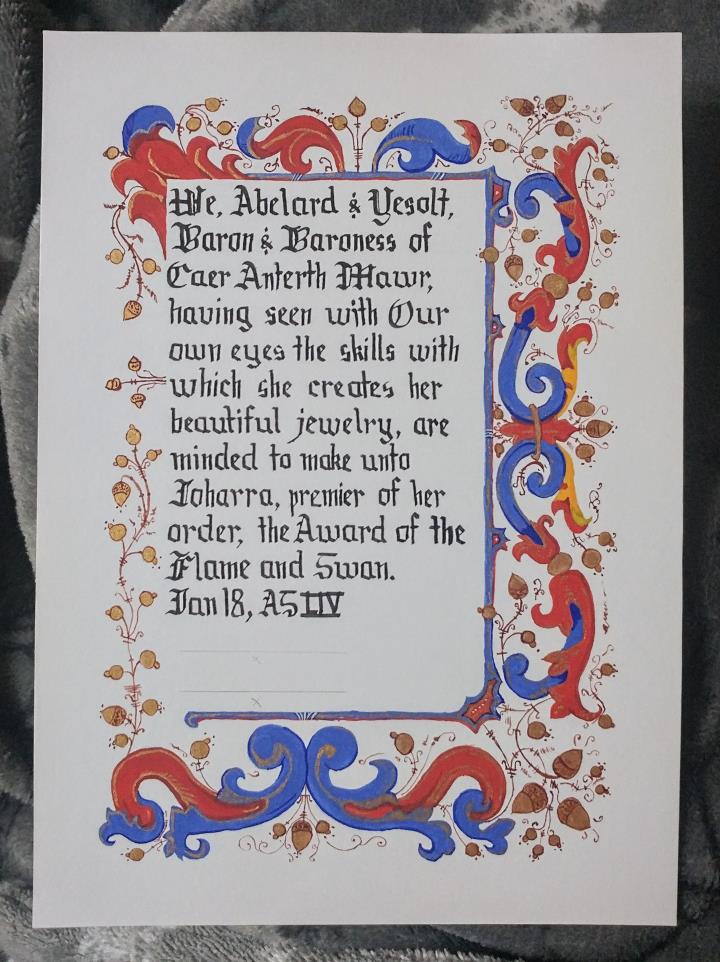 We, Abelard & Yesolt,
Baron & Baroness of
Caer Anterth Mawr,
having seen with Our
own eyes the skills with
which she creates her
beautiful jewelry, are
minded to make unto
Ioharra, premier of her
order, the Award of the
Flame and Swan.
Jan 18, AS LIV
x
x